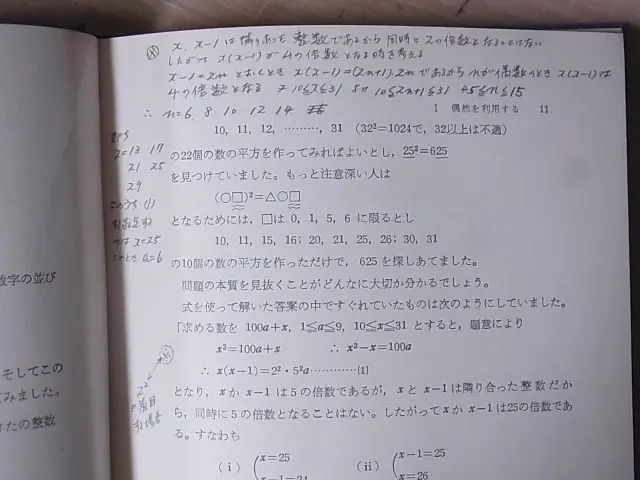 x, x−1は隣りあった整数であるから同時に2の倍数となることはない
したがって x(x−1)が4の倍数となる時を考える
x−1=2nとおくとき x(x−1)=(2n+1)·2nであるからnが偶数のとき x(x−1)は
4の倍数となる 10≦x≦31 10≦2n+1≦31 4.5≦n≦15
∴ n=6 8 10 12 14
1 偶然を利用する 11
即ち
x=13 17
21 25
29
このうち(1)
x=25
このとき a=6
10, 11, 12, ………, 31 (32²=1024で, 32以上は不適)
の22個の数の平方を作ってみればよいとし, 25²=625
を見つけていました。もっと注意深い人は
(○□)²=△○□
となるためには, □は 0, 1, 5, 6 に限るとし
10, 11, 15, 16; 20, 21, 25, 26; 30, 31
の10個の数の平方を作っただけで, 625を探しあてました。
問題の本質を見抜くことがどんなに大切か分かるでしょう。
式を使って解いた答案の中ですぐれていたものは次のようにしていました。
「求める数を 100a+x, 1≦a≦9, 10≦x≦31 とすると, 題意により
x²=100a+x ∴ x²−x=100a
∴ x(x−1)=2²·5²a…………(1)
となり, xか x−1 は5の倍数であるが, xと x−1は隣り合った整数だか
ら, 同時に5の倍数となることはない。したがってxか x−1は25の倍数であ
る。すなわち
(i) x=25 (ii) x−1=25
x−1=24 x=26
2²
に着目
数字の並び
そしてこの
みました。
けたの整数